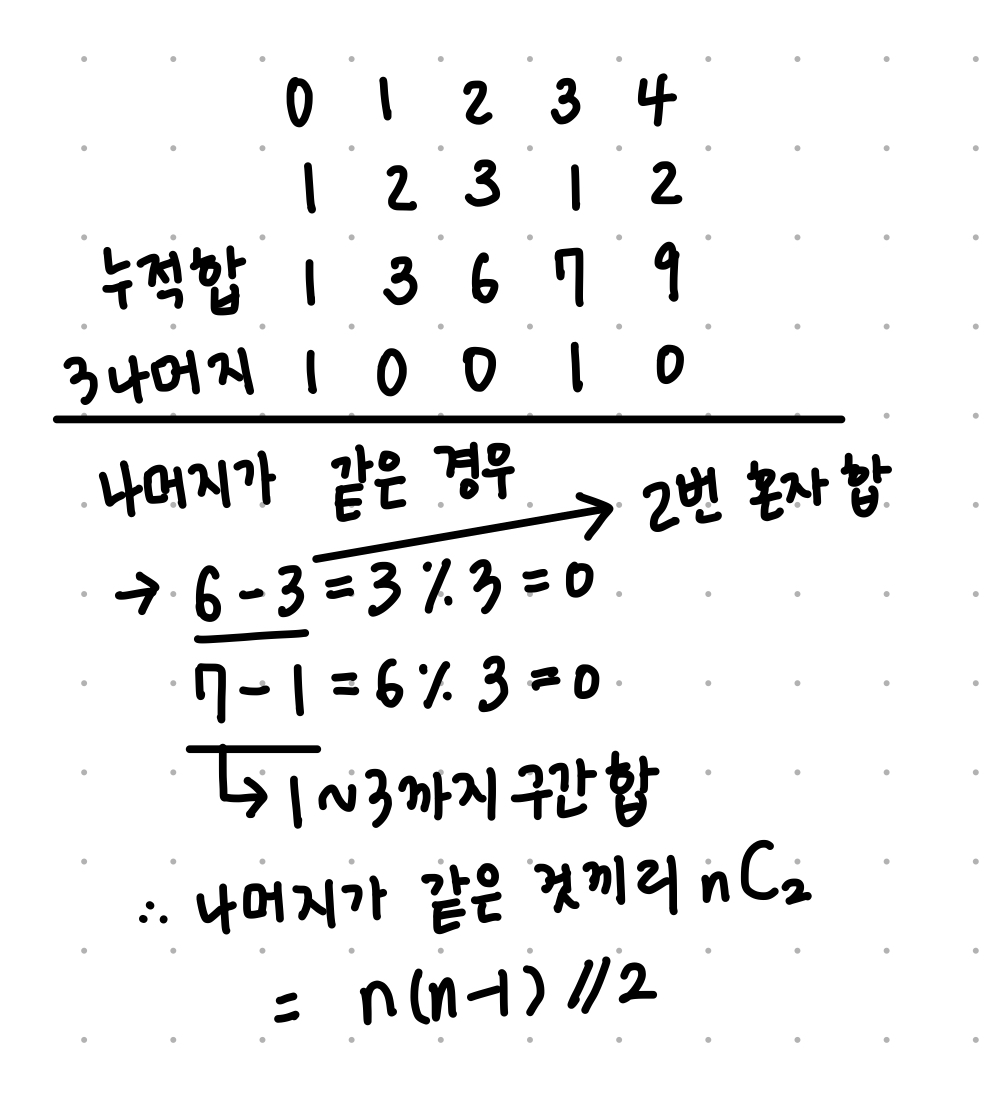 0 1 2 3 4
1 2 3 1 2
누적합 1 3 6 7 9
3나머지 1 0 0 1 0
나머지가 같은 경우
2번 혼자 합
→ 6 - 3 = 3 % 3 = 0
7 - 1 = 6 % 3 = 0
↳ 1 ~ 3까지 구간 합
∴ 나머지가 같은 것끼리 nC₂
= n(n-1) // 2